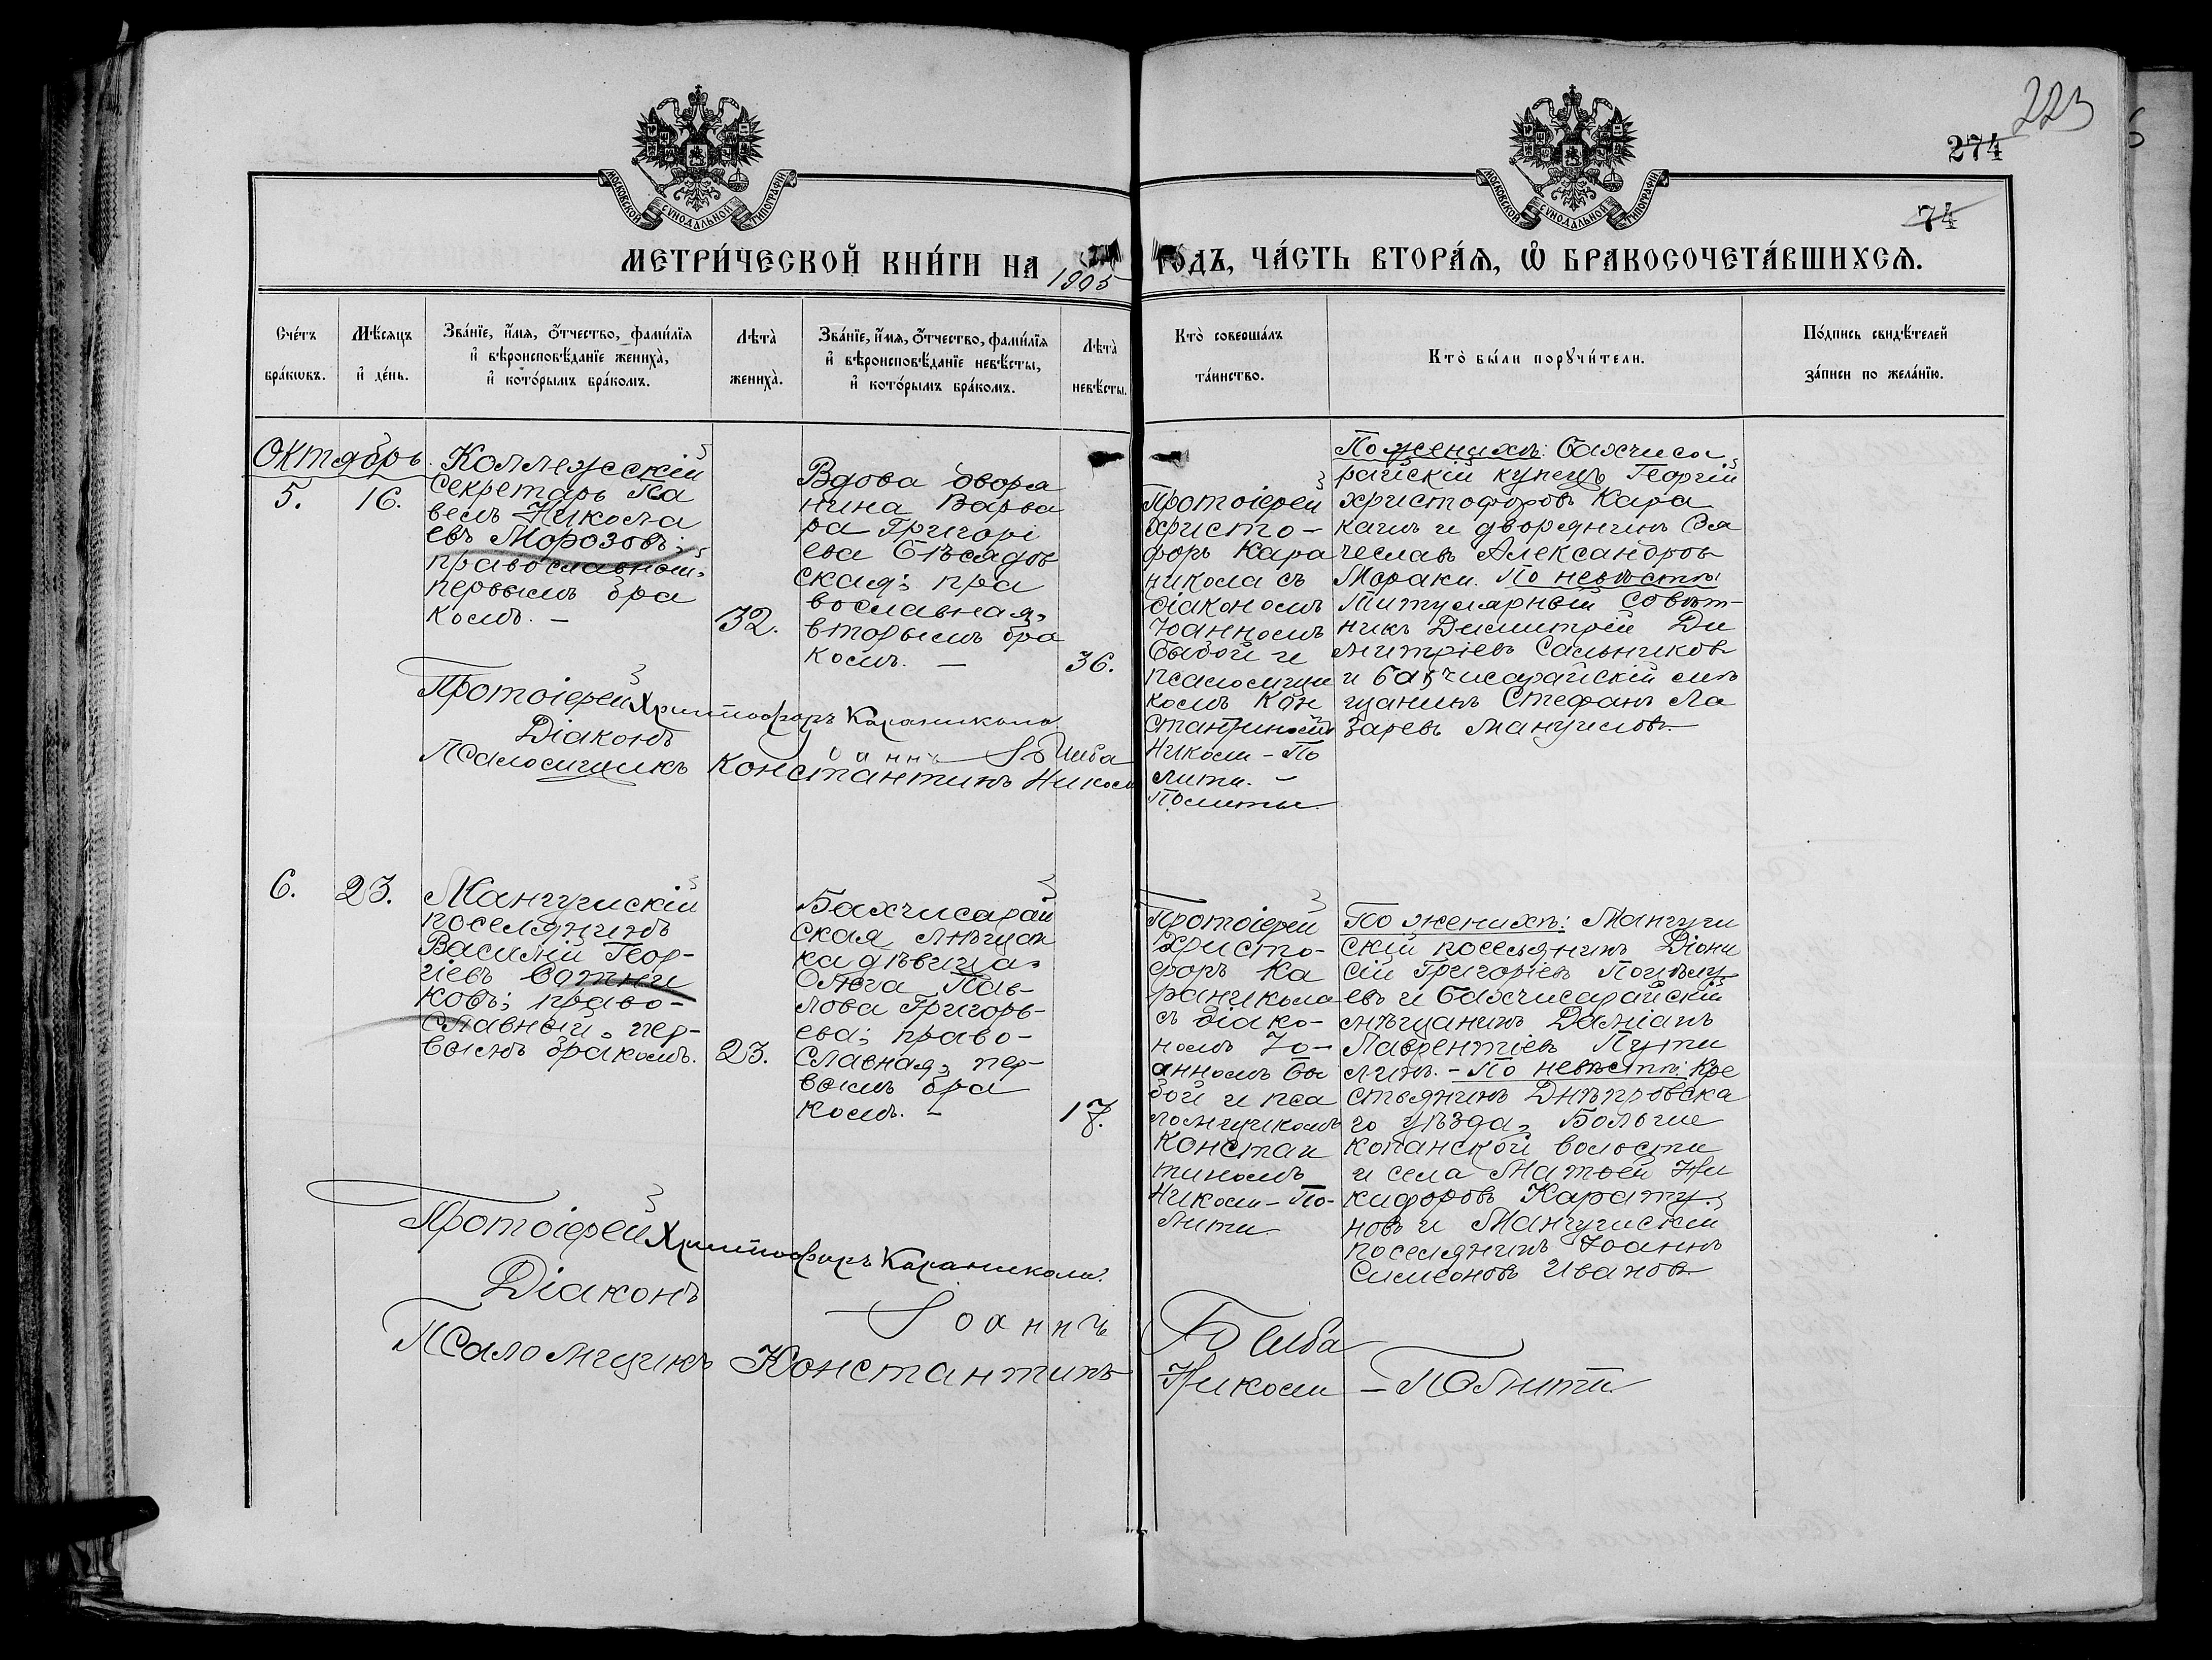 223
274
74
МОСКОВСКОЙ СѴНОДАЛЬНОЙ ТИПОГРАФІИ
МОСКОВСКОЙ СѴНОДАЛЬНОЙ ТИПОГРАФІИ
МЕТРИ́ЧЕСКОЙ КНИ́ГИ НА 1905 ГО́ДЪ, ЧА́СТЬ ВТОРА́Ѧ, Ѽ БРАКОСОЧЕТА́ВШИХСѦ.
Сче́тъ бра́кѡвъ.
Мѣ́сяцъ и҆ де́нь.
Зва́нїе, и҆́мѧ, ѻ҆́тчество, фами́лїѧ
и҆ вѣроисповѣ́данїе жениха̀,
и҆ кото́рымъ бра́комъ.
Лѣта̀ жениха̀.
Зва́нїе, и҆́мѧ, ѻ҆́тчество, фами́лїѧ
и҆ вѣроисповѣ́данїе невѣ́сты,
и҆ кото́рымъ бра́комъ.
Лѣта̀ невѣ́сты.
Кто̀ соверша́лъ та́инство.
Кто̀ бы́ли порꙋчи́тели.
По́дпись свидѣ́телей за́писи по жела́нїю.
Октябрь.
5.
16.
Коллежскій
секретарь Па
велъ Никола
евъ Морозовъ;
православный,
первымъ бра
комъ. —
32.
Вдова дворя
нина Варва
ра Григорі
ева Бѣсядов
ская; пра
вославная,
вторымъ бра
комъ. —
36.
Протоіерей
Христо-
форъ Кара
никола съ
діакономъ
Іоанномъ
Бабой и
псаломщи
комъ Кон
стантиномъ
Николи - По
лити. —
Политы.
По женихѣ: Бахчиса
райскій купецъ Георгій
Христофоровъ Кара
кашъ и дворянинъ Вя
чеславъ Александровъ
Мораки. По невѣстѣ:
Титулярный совѣт-
никъ Димитрій Ди
митріевъ Сальников
и Бахчисарайскій мѣ
щанинъ Стефанъ Ла
заревъ Мангушовъ.
Протоіерей Христофоръ Караникола
Діаконъ Іоаннъ Баба
Псаломщикъ Константинъ Никол
6.
23.
Мангушскій
поселянинъ
Василій Геор-
гіевъ Сотни
ковъ; право-
славный, пер-
вымъ бракомъ.
23.
Бахчисарай
ская мѣщан
ка дѣвица
Ольга Пав-
лова Григорь-
ева; право-
славная, пер-
вымъ бра
комъ. —
17.
Протоіерей
Христо-
форъ Ка
раникола
съ діако-
номъ Іо-
анномъ Ба
бой и пса
ломщикомъ
Констан
тиномъ
Николи - По-
лити
По женихѣ: Мангуш
скій поселянинъ Діони
сій Григоріевъ Поцѣлу
евъ и Бахчисарайскій
мѣщанинъ Даміанъ
Лаврентіевъ Пути
линъ. - По невѣстѣ: Кре
стьянинъ Днѣпровска
го уѣзда, Больше
копанской волости
и села Матѳей Ни
кифоровъ Карату
новъ и Мангушскій
поселянинъ Іоаннъ
Симеоновъ Ивановъ
Протоіерей Христофоръ Караникола.
Діаконъ Іоаннъ Баба
Псаломщикъ Константинъ Николи — Полити